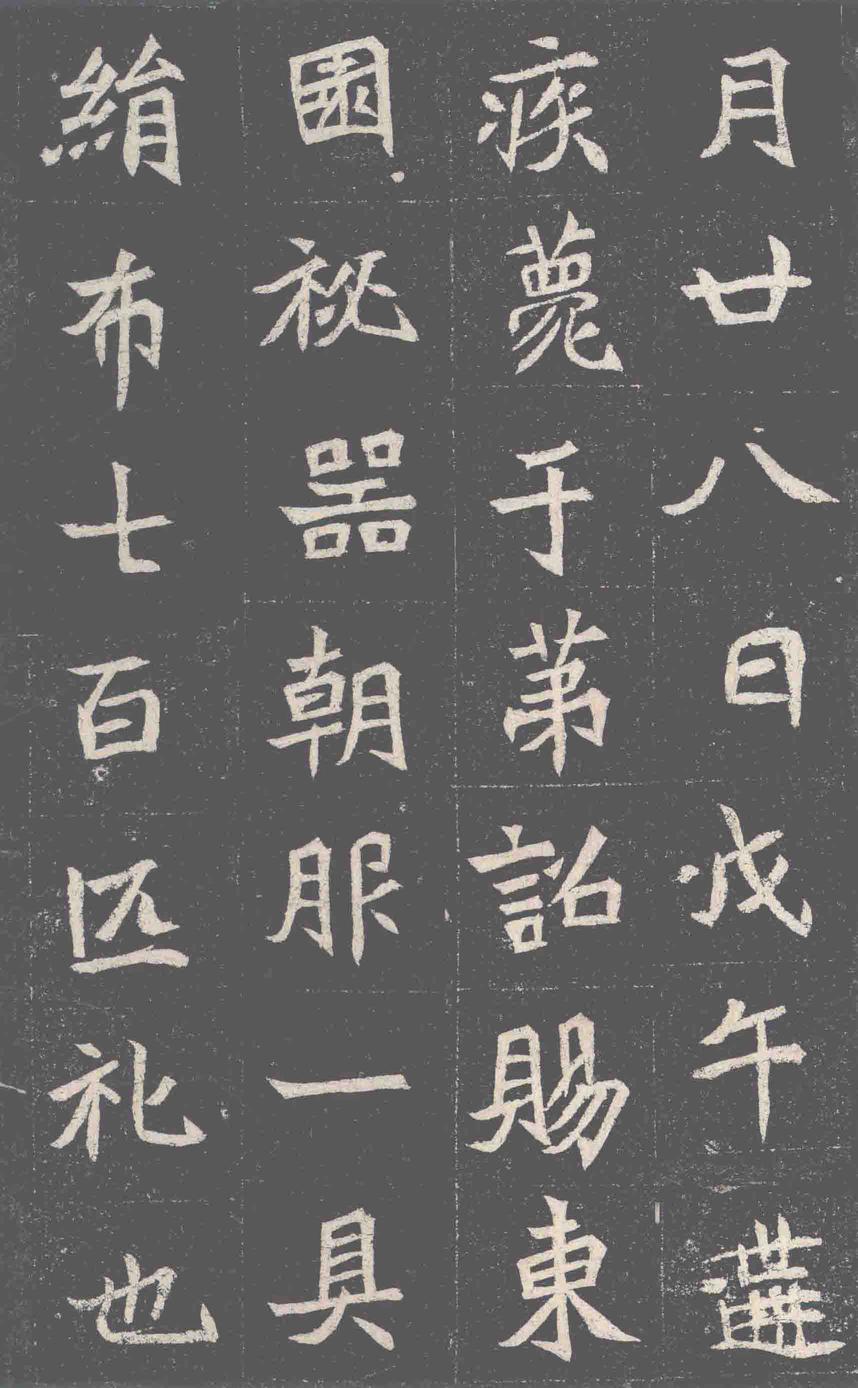 月廿八日戊午遘
疾薨于苐詔賜東
園祕器朝服一具
絹布七百匹礼也